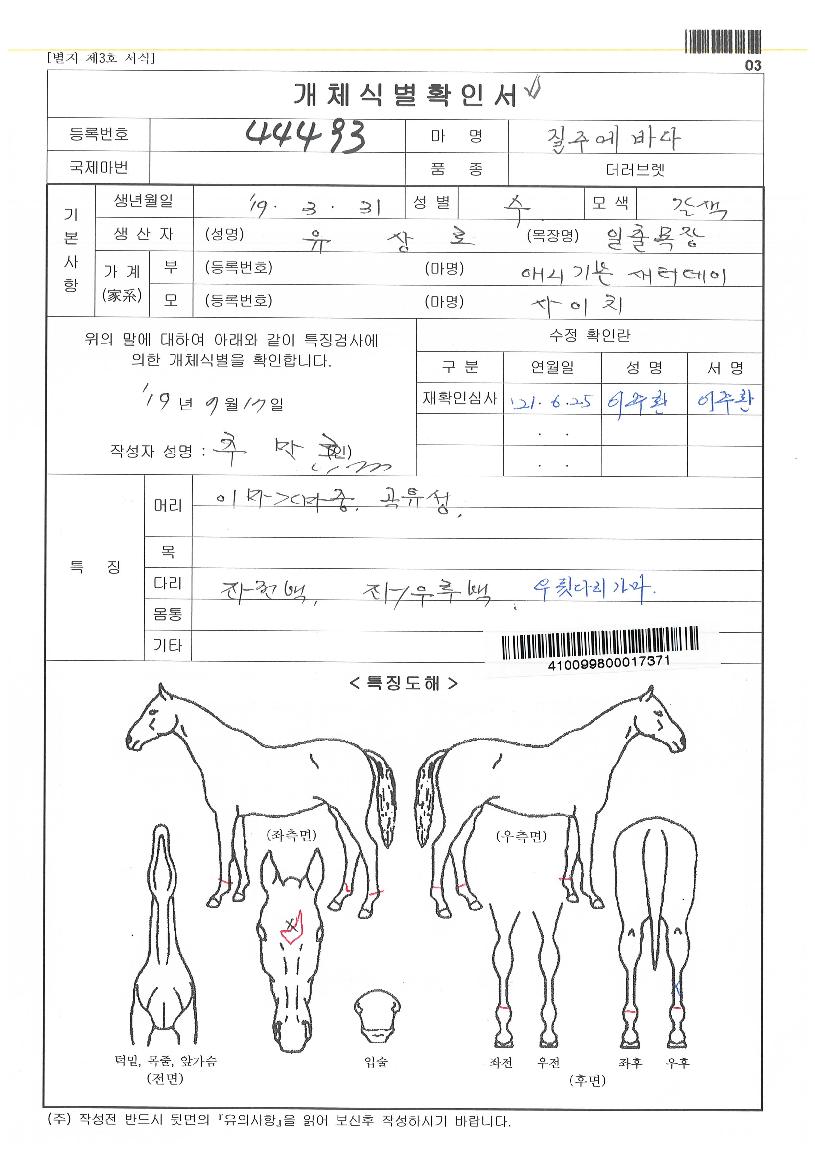 [별지 제3호 서식]
03
개체식별확인서
등록번호 44493 마 명 질주에바다
국제마번 품 종 더러브렛
기본사항
생년월일 '19. 3. 31 성 별 수 모 색 갈색
생 산 자 (성명) 유 상 로 (목장명) 일출목장
가 계 (家系)
부 (등록번호) (마명) 애니기븐 새터데이
모 (등록번호) (마명) 사이치
위의 말에 대하여 아래와 같이 특징검사에
의한 개체식별을 확인합니다.
'19 년 9월 17일
작성자 성명 : (인)
수정 확인란
구 분 연월일 성 명 서 명
재확인심사 '21. 6. 25 이주환 이주환
. .
. .
특 징
머리 이마>대중, 곡류성,
목
다리 좌전백, 좌/우후백, 우뒷다리가마.
몸통
기타
410099800017371
<특징도해>
(좌측면) (우측면)
턱밑, 목줄, 앞가슴
(전면)
입술
좌전 우전 좌후 우후
(후면)
(주) 작성전 반드시 뒷면의 『유의사항』을 읽어 보신후 작성하시기 바랍니다.